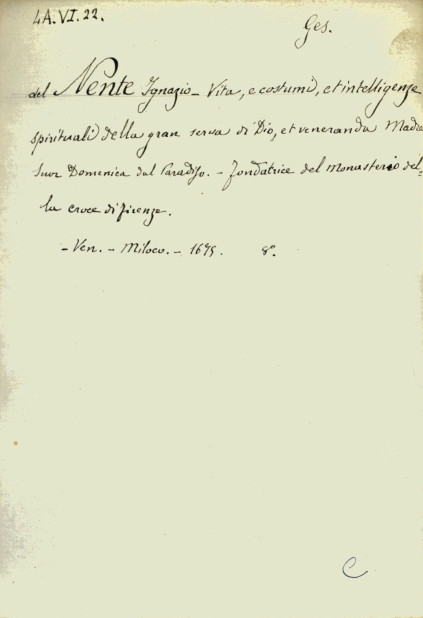 4A.VI.22.
Ges.
del Nente Ignazio - Vita, e costumi, et intelligenze
spirituali della gran serva di Dio, et veneranda Madre
Suor Domenica dal Paradiso. - Fondatrice del Monasterio del-
la croce di Firenze.
- Ven. - Miloco. - 1675. 8°.
C